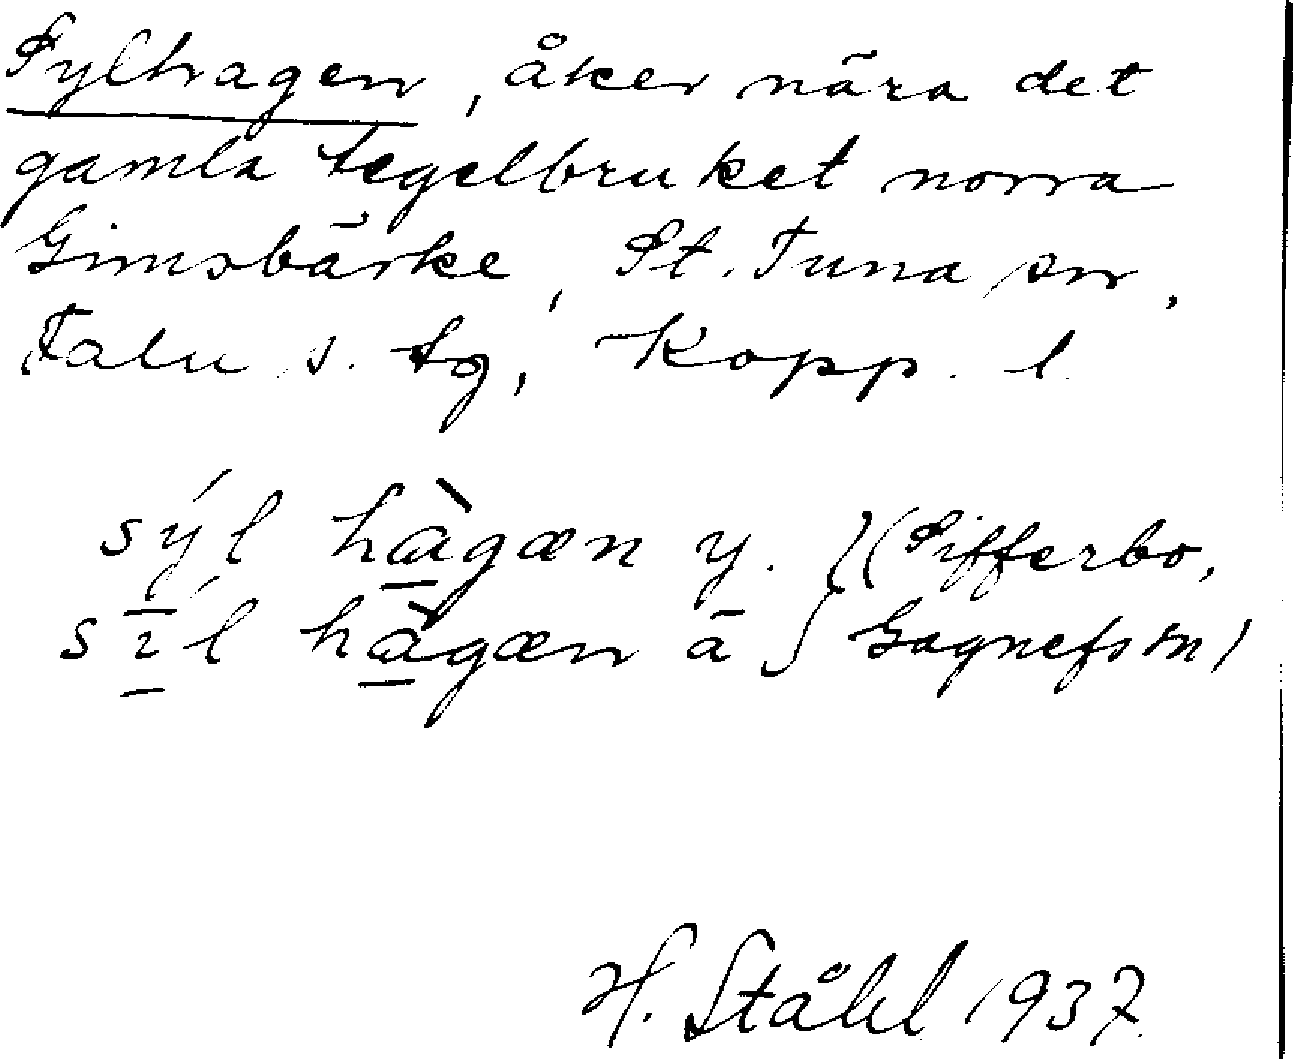 Sylhagen, åker nära det
gamla tegelbruket norra
Gimsbärke, St. Tuna sn,
Falu s. tg, Kopp. l.
sýl hàgæn y. } (Sifferbo,
síl hàgæn ä } Gagnefs sn)
H. Ståhl 1937